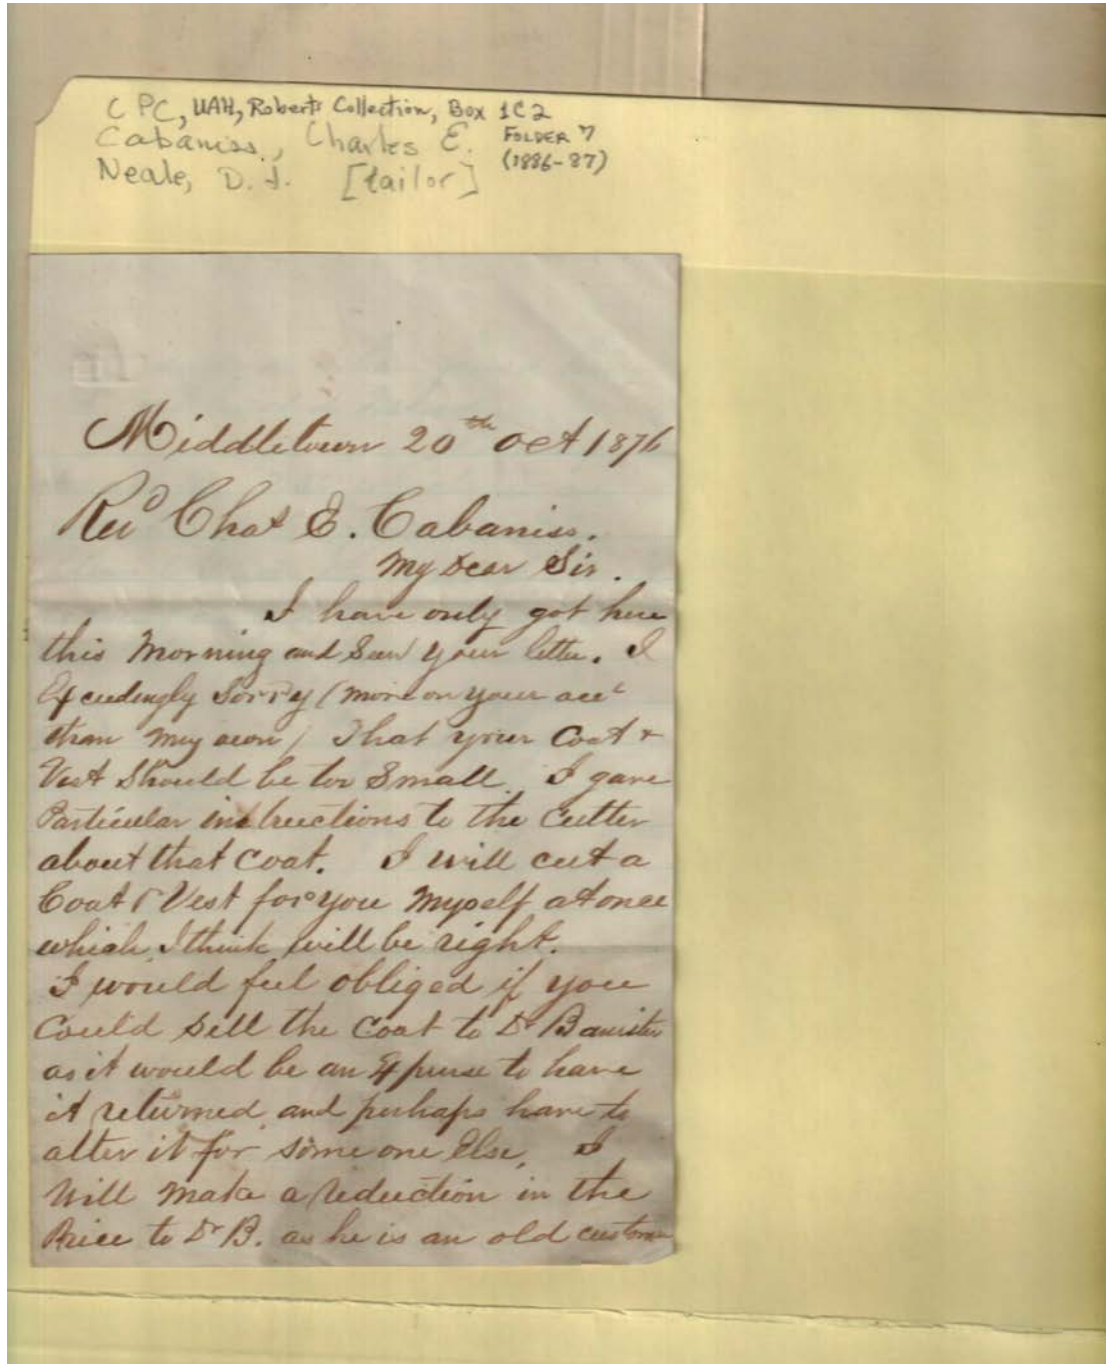 C PC, UAH, Roberts Collection, Box 1C2
Cabaniss, Charles E. FOLDER 7
Neale, D. J. [tailor] (1886-87)
Middletown 20th Oct 1876
Revd Chas E. Cabaniss.
My Dear Sir.
I have only got here
this Morning and Saw your letter. I
Exceedingly Sorry (more on your acct
than my own) That your Coat &
Vest Should be too Small. I gave
Particular instructions to the Cutter
about that Coat. I will cut a
Coat & Vest for you Myself at once
which I think will be right.
I would feel obliged if you
Could Sell the Coat to Dr Banister
as it would be an Expense to have
it returned and perhaps have to
alter it for some one Else. I
Will Make a reduction in the
Price to Dr B. as he is an old custome